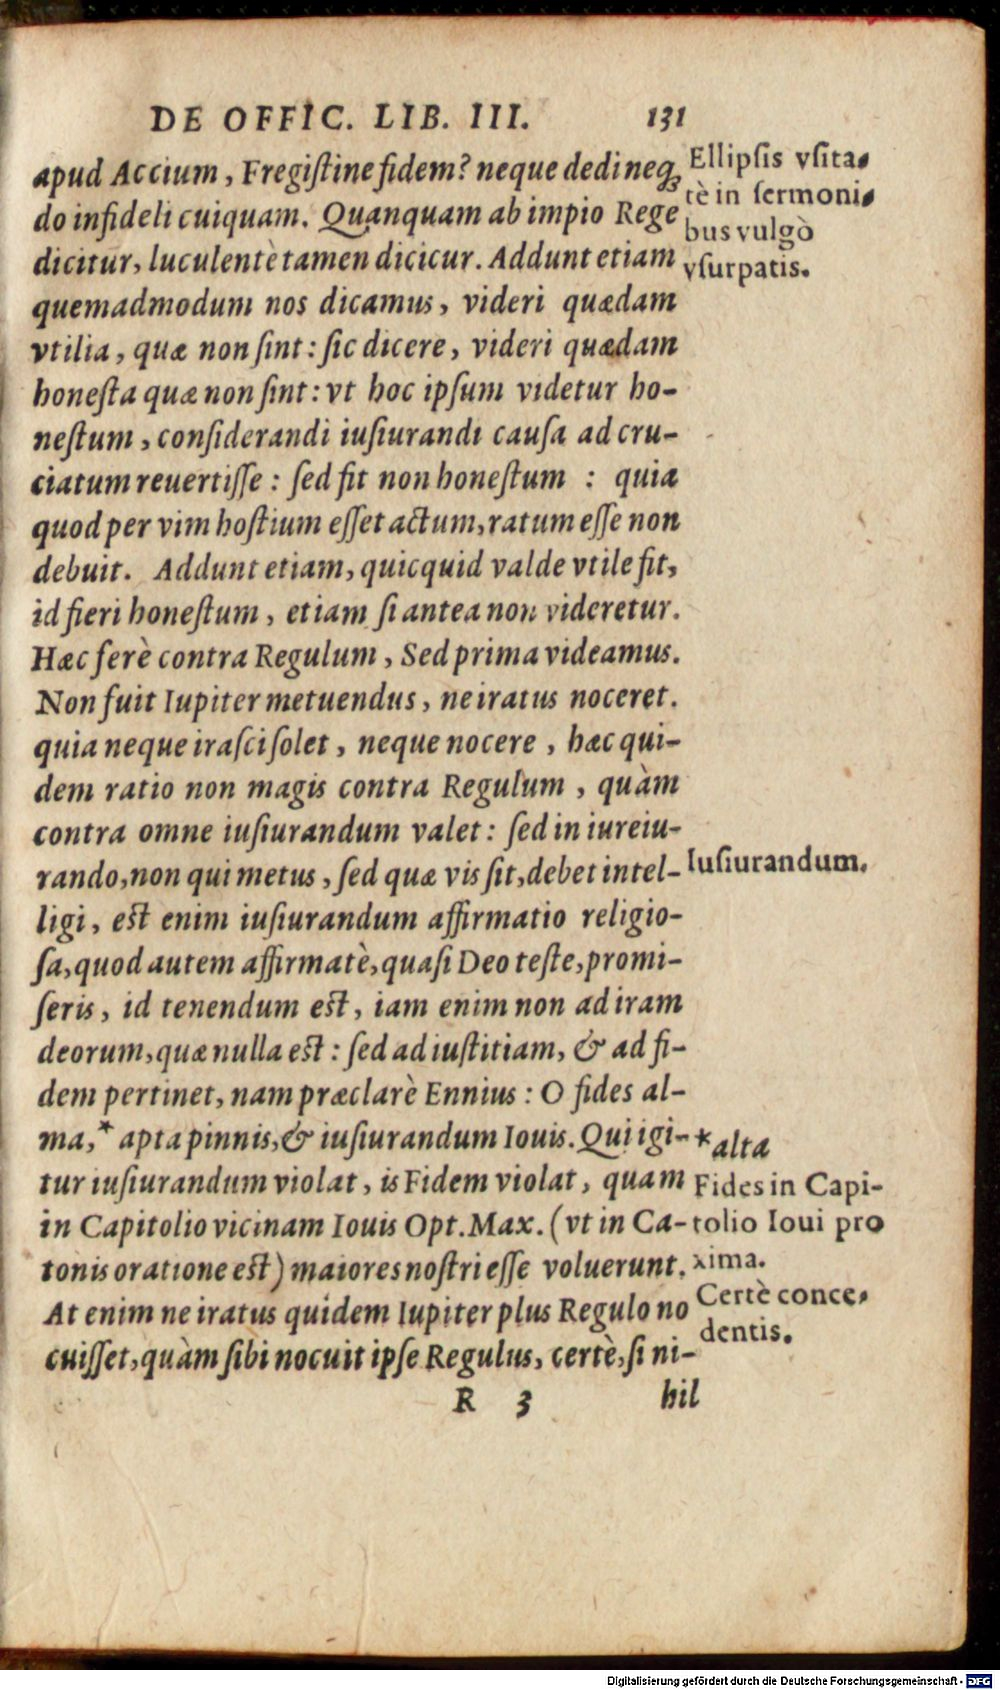 DE OFFIC. LIB. III. 131
apud Accium, Fregiſtine fidem? neque dedi neq;
do infideli cuiquam. Quanquam ab impio Rege
dicitur, luculentè tamen dicicur. Addunt etiam
quemadmodum nos dicamus, videri quædam
vtilia, quæ non ſint: ſic dicere, videri quædam
honeſta quæ non ſint: vt hoc ipſum videtur ho-
neſtum, conſiderandi iuſiurandi cauſa ad cru-
ciatum reuertiſſe: ſed fit non honeſtum : quia
quod per vim hoſtium eſſet actum, ratum eſſe non
debuit. Addunt etiam, quicquid valde vtile ſit,
id fieri honeſtum, etiam ſi antea non videretur.
Hæc ferè contra Regulum, Sed prima videamus.
Non fuit Iupiter metuendus, ne iratus noceret.
quia neque iraſci ſolet, neque nocere, hæc qui-
dem ratio non magis contra Regulum, quàm
contra omne iuſiurandum valet: ſed in iureiu-
rando, non qui metus, ſed quæ vis ſit, debet intel-
ligi, eſt enim iuſiurandum affirmatio religio-
ſa, quod autem affirmatè, quaſi Deo teſte, promi-
ſeris, id tenendum eſt, iam enim non ad iram
deorum, quæ nulla eſt: ſed ad iuſtitiam, & ad fi-
dem pertinet, nam præclarè Ennius: O fides al-
ma,* apta pinnis, & iuſiurandum Iouis. Qui igi-
tur iuſiurandum violat, is Fidem violat, quam
in Capitolio vicinam Iouis Opt. Max. (vt in Ca-
tonis oratione eſt) maiores noſtri eſſe voluerunt.
At enim ne iratus quidem Iupiter plus Regulo no
cuiſſet, quàm ſibi nocuit ipſe Regulus, certè, ſi ni-
R 3 hil
Ellipſis vſita-
tè in ſermoni-
bus vulgò
vſurpatis.
Iuſiurandum.
*alta
Fides in Capi-
tolio Ioui pro
xima.
Certè conce-
dentis.
Digitalisierung gefördert durch die Deutsche Forschungsgemeinschaft - DFG